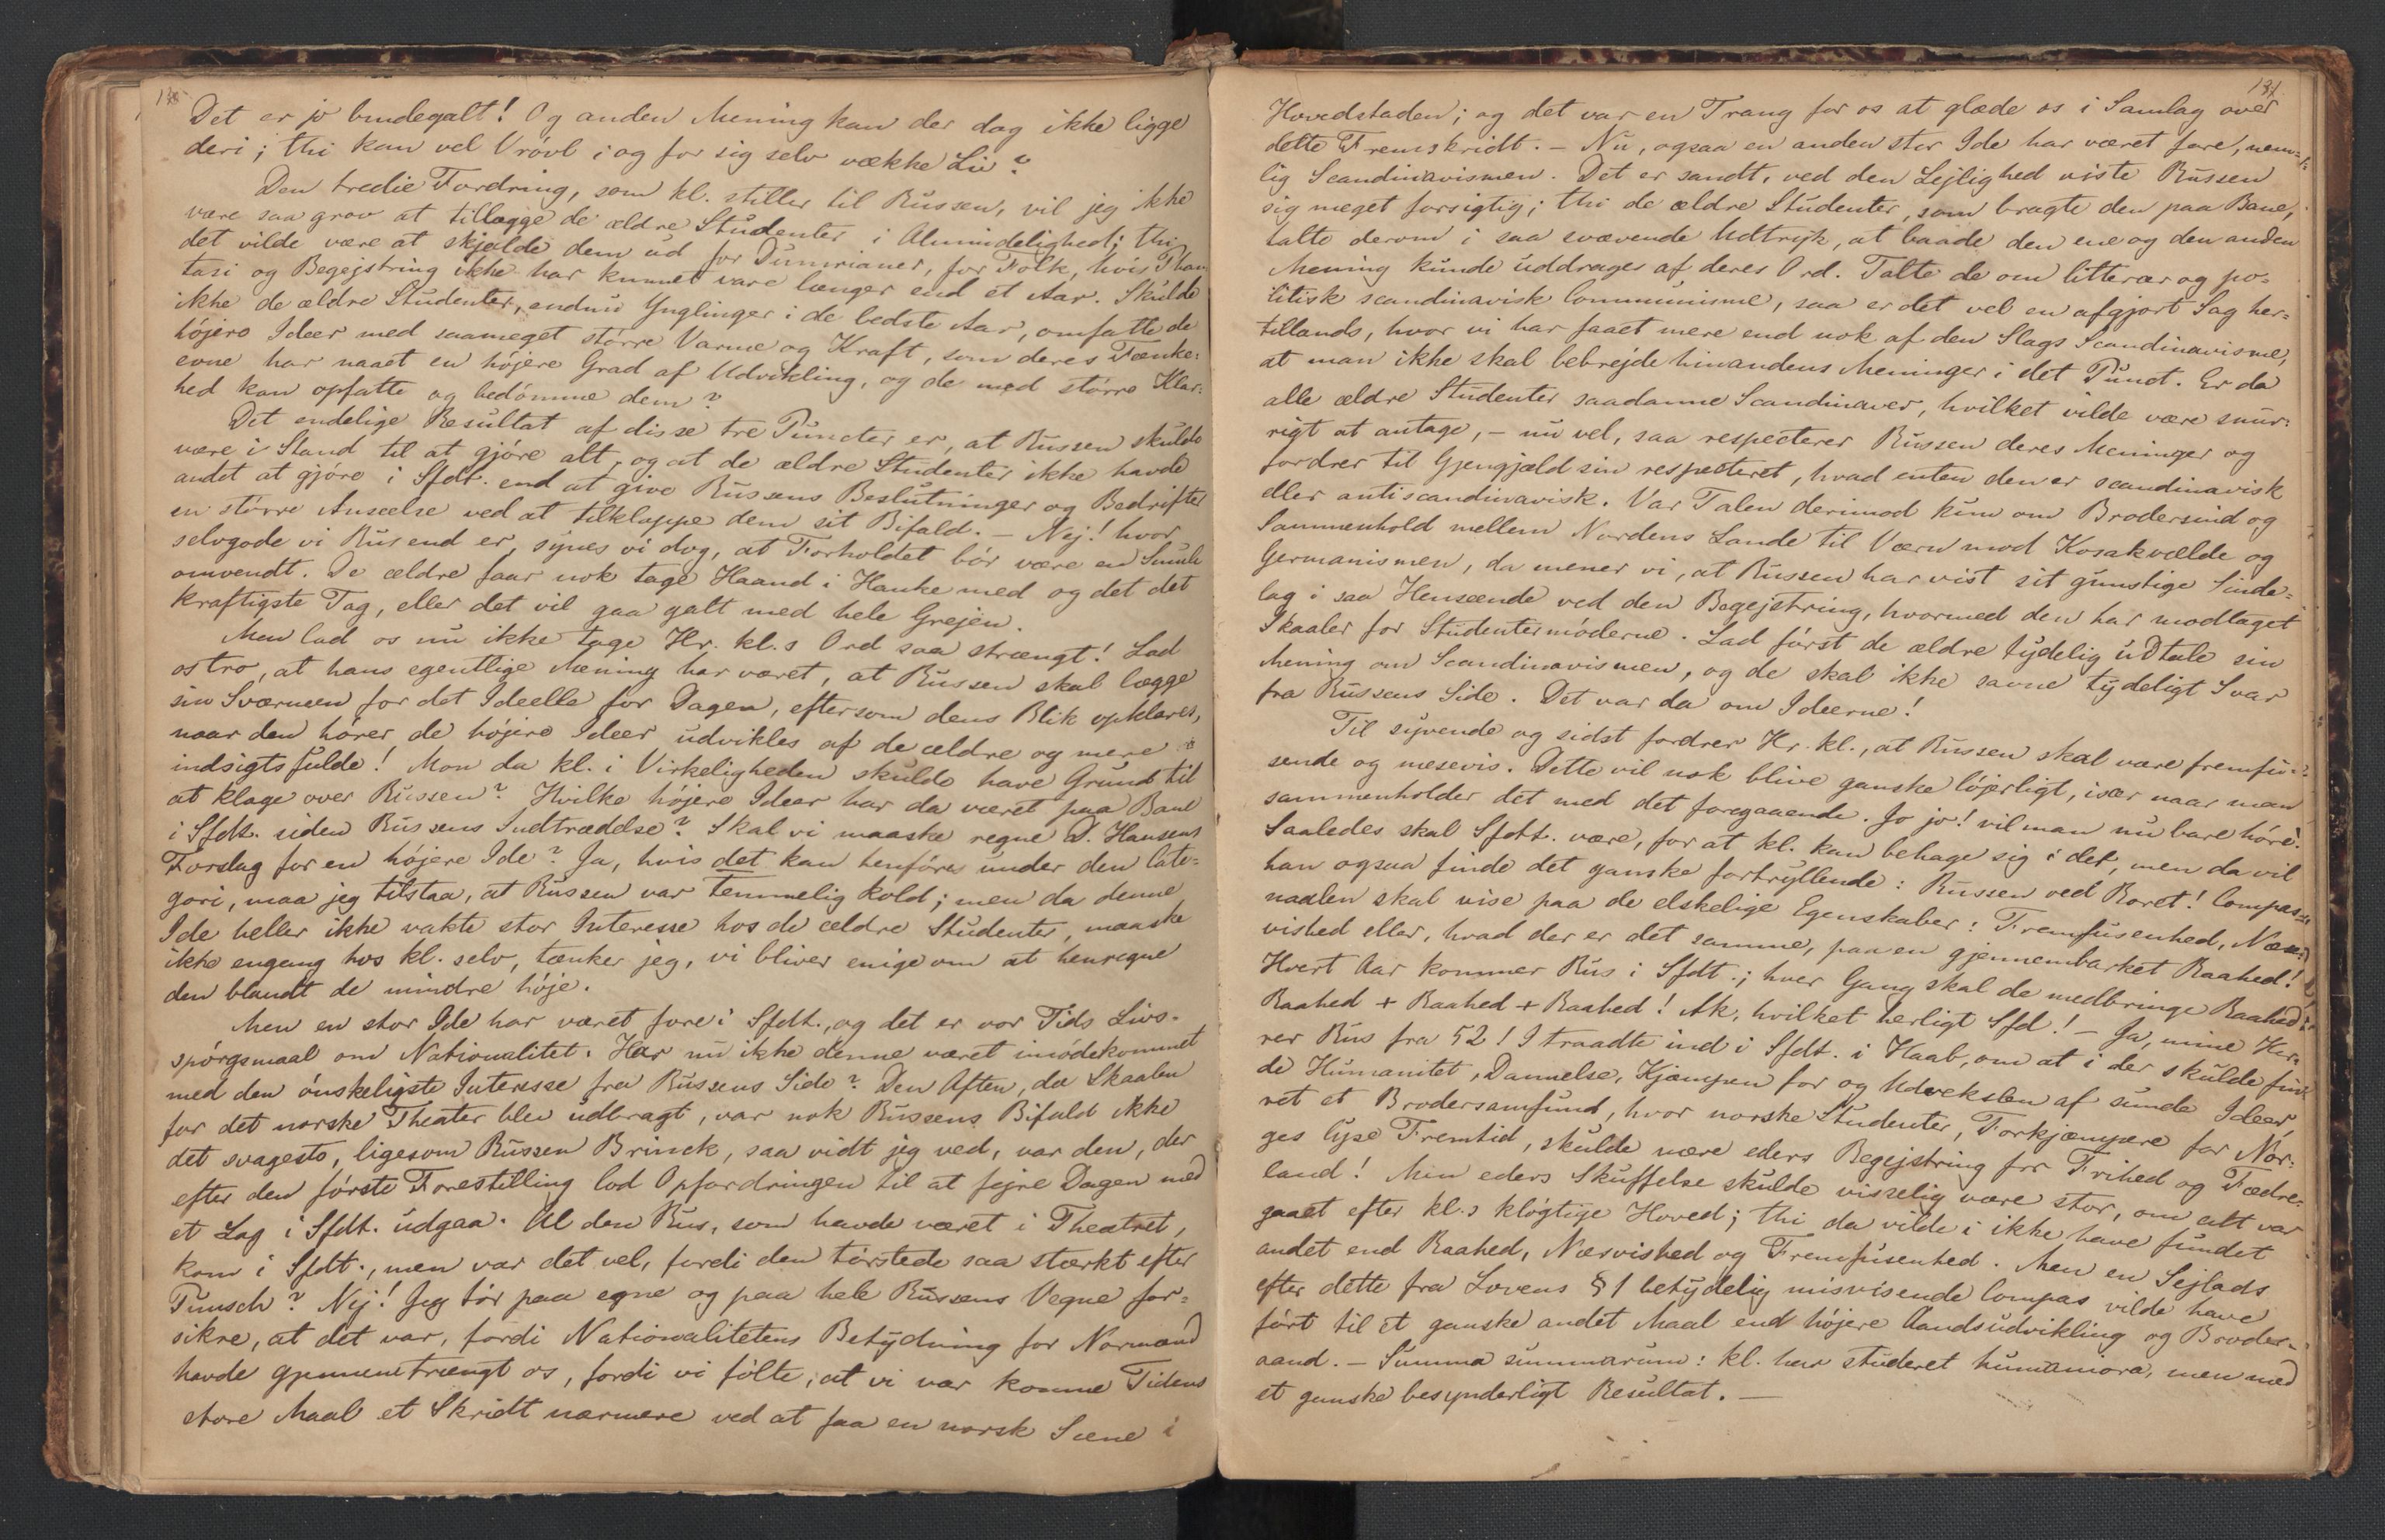 Det er jo bundegalt! Og anden Mening kan der dog ikke ligge
deri; thi kan vel Vrövl i og for sig selv vække Liv?
Den tredie Fordring, som kl. stiller til Russen, vil jeg ikke
være saa grov at tillægge de ældre Studenter i Almindelighed; thi
det vilde være at skjælde dem ud for Dumrianer, for Folk, hvis Phan
tasi og Begejstring ikke har kunnet vare længer end et Aar. Skulde
ikke de ældre Studenter, endnu Ynglinger i de bedste Aar, omfatte de
höjere Ideer med saameget större Varme og Kraft, som deres Tænke=
evne har naaet en höjere Grad af Udvikling, og de med större Klar=
hed kan opfatte og bedömme dem?
Det endelige Resultat af disse tre Puncter er, at Russen skulde
være i Stand til at gjöre alt, og at de ældre Studenter ikke havde
andet at gjöre i Sfdt. end at give Russens Beslutninger og Bedrifter
en större Anseelse ved at tilklappe dem sit Bifald. – Nej! hvor
selvgode vi Rus end er, synes vi dog, at Forholdet bör være en Smule
omvendt. De ældre faar nok tage Haand i Hanke med og det det
kraftigste Tag, eller det vil gaa galt med hele Grejen.
Men lad os nu ikke tage Hr. kl.s Ord saa strængt! Lad
os tro, at hans egentlige Mening har været, at Russen skal lægge
sin Sværmen for det Ideelle for Dagen, eftersom dens Blik opklares,
naar den hörer de höjere Ideer udvikles af de ældre og mere
indsigtsfulde! Mon da kl. i Virkeligheden skulde have Grund til
at klage over Russen? Hvilke höjere Ideer har da været paa Bane
i Sfdt. siden Russens Indtrædelse? Skal vi maaske regne D. Hansens
Forslag for en höjere Ide? Ja, hvis det kan henföres under den Cate=
gori, maa jeg tilstaa, at Russen var temmelig kold; men da denne
Ide heller ikke vakte stor Interesse hos de ældre Studenter, maaske
ikke engang hos kl. selv, tænker jeg, vi bliver enige om at henregne
den blandt de mindre höje.
Men en stor Ide har været fore i Sfdt., og det er vor Tids Livs-
spörgsmaal om Nationalitet. Har nu ikke denne været imödekommet
med den önskeligste Interesse fra Russens Side? Den Aften, da Skaalen
for det norske Theater blev udbragt, var nok Russens Bifald ikke
det svageste, ligesom Russen Brinck, saa vidt jeg ved, var den, der
efter den förste Forestilling lod Opfordringen til at fejre Dagen med
et Lag i Sfdt. udgaa. Al den Rus, som havde været i Theatret,
kom i Sfdt., men var det vel, fordi den törstede saa stærkt efter
Punsch? Nej! Jeg tör paa egne og paa hele Russens Vegne for=
sikre, at det var, fordi Nationalitetens Betydning for Normand
havde gjennemtrængt os, fordi vi fölte, at vi var komne Tidens
store Maal et Skridt nærmere ved at faa en norsk Scene i
131.
Hovedstaden; og det var en Trang for os at glæde os i Samlag over
dette Fremskridt. – Nu, ogsaa en anden stor Ide har været fore, nem=
lig Scandinavismen. Det er sandt, ved den Lejlighed viste Russen
sig meget forsigtig; thi de ældre Studenter, som bragte den paa Bane,
talte derom i saa svævende Udtryk, at baade den ene og den anden
Mening kunde uddrages af deres Ord. Talte de om litterær og po=
litisk scandinavisk Communisme, saa er det vel en afgjort Sag her=
tillands, hvor vi har faaet mere end nok af den Slags Scandinavisme,
at man ikke skal bebrejde hinandens Meninger i det Punct. Er da
alle ældre Studenter saadanne Scandinaver, hvilket vilde være snur=
rigt at antage, – nu vel, saa respecterer Russen deres Meninger og
fordrer til Gjengjæld sin respecteret, hvad enten den er scandinavisk
eller antiscandinavisk. Var Talen derimod kun om Brodersind og
Sammenhold mellem Nordens Lande til Værn mod Kosakvælde og
Germanismen, da mener vi, at Russen har vist sit gunstige Sinde=
lag i saa Henseende ved den Begejstring, hvormed den har modtaget
Skaaler for Studentermöderne. Lad först de ældre tydelig udtale sin
Mening om Scandinavismen, og de skal ikke savne tydeligt Svar
fra Russens Side. Det var da om Ideerne!
Til syvende og sidst fordrer Hr. kl., at Russen skal være fremfu=
sende og næsevis. Dette vil nok blive ganske löjerligt, især naar man
sammenholder det med det foregaaende. Jo jo! vil man nu bare höre!
Saaledes skal Sfdt. være, for at kl. kan behage sig i det, men da vil
han ogsaa finde det ganske fortryllende: Russen ved Roret! Compas=
naalen skal vise paa de elskelige Egenskaber: Fremfusenhed, Næse=
vished eller, hvad der er det samme, paa en gjennembarket Raahed!
Hvert Aar kommer Rus i Sfdt.; hver Gang skal de medbringe Raahed:
Raahed + Raahed + Raahed! Ak, hvilket herligt Sfd.! – Ja, mine Her=
rer Rus fra 52! I traadte ind i Sfdt. i Haab, om at i der skulde fin=
de Humanitet, Dannelse, Kjæmpen for og Udvekslen af sunde Ideer,
ret et Brodersamfund, hvor norske Studenter, Forkjæmpere for Nor=
ges lyse Fremtid, skulde nære eders Begejstring for Frihed og Fædre=
land! Men eders Skuffelse skulde visselig være stor, om alt var
gaaet efter kl.s klögtige Hoved; thi da vilde i ikke have fundet
andet end Raahed, Næsvished og Fremfusenhed. Men en Sejlads
efter dette fra Lovens § 1 betydelig misvisende Compas vilde have
fört til et ganske andet Maal end höjere Aandsudvikling og Broder=
aand. – Summa summarum: kl. har studeret humaniora, men med
et ganske besynderligt Resultat. –